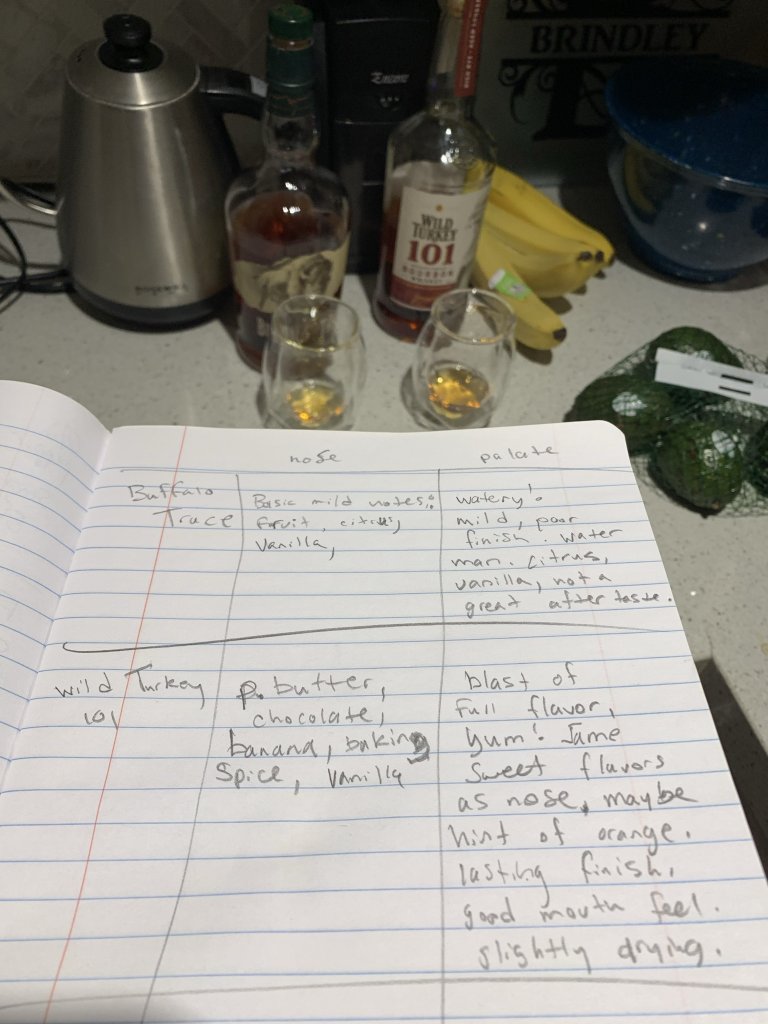 BRINDLEY
Encore
WILD
TURKEY
101
BOURBON
WHISKEY
nose
palate
Buffalo
Trace
Basic mild notes:
fruit, citrus,
vanilla,
watery!
mild, poor
finish. water
man. citrus,
vanilla, not a
great after taste.
wild Turkey
101
p. butter,
chocolate,
banana, baking
spice, vanilla
blast of
full flavor,
yum! Same
sweet flavors
as nose, maybe
hint of orange.
lasting finish,
good mouth feel.
slightly drying.